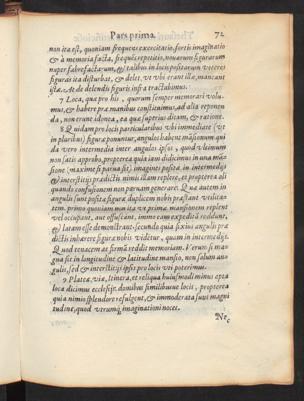 Pars prima. 72
non ita est, quoniam frequens exercitatio, fortis imaginatio
& à memoria facta, frequens repetitio, nouarum figurarum
nuper fabrefactarum, & talibus in locis positarum veteres
figuras ita disturbat, & delet, vt vbi erant illæ, maneant
istæ. At de delendis figuris infra tractabimus.
7 Loca, qua pro his, quorum semper memorari volu-
mus, & habere præ manibus constituimus, ad alia exponen
da, non erunt idonea, ea quæ superius dictam, & ratione.
8 Quidam pro locis particularibus vbi immediate (vt
in pluribus) figuræ ponuntur, angulos habent mansionum qui
da vero intermedia inter angulos ipsos, quod vtcumque
non satis approbo, propterea quia iam didicimus in una mã
sione (maxime si parua sit) imagines positas in intermedijs
& interstitijs prædictis nimis illam replere, et propterea ali
quando confusionem non paruam generare. Quæ autem in
angulis sunt positæ figuræ duplicem nobis præstant vtilita
tem. primo quoniam non ita vt primæ, mansionem replent
vel occupant, aut offuscant, immo eam expeditã reddunt,
& latam esse demonstrant: secundo quia fixius angulis præ
dictis inhærere figuræ nobis videntur, quam in intermedijs.
Quod tenacem ac firmã reddit memoriam. Verum si ma-
gna sit in longitudine & latitudine mansio, non solum an-
gulis, sed & interstitijs ipsis pro locis vti poterimus.
9 Plateæ, viæ, itinera, et reliqua huiusmodi minus apta
loca dicimus ecclesijs, domibus similibusue locis, propterea
quia nimis splendore refulgent, & immoderata suæ magni
tudine, quod vtrumq; imaginationi nocet.
Ne